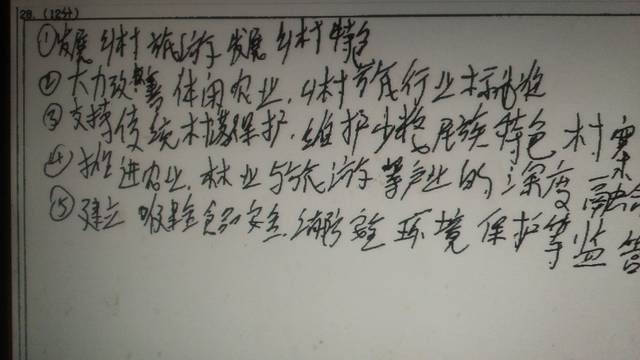 28. (12分)
①发展乡村旅游 发展乡村特色
②大力改善休闲农业、乡村旅行业标准
③支持传统村落保护、维护少数民族特色村寨
④推进农业、林业与旅游等产业的深度融合
⑤建立 食品安全、消防安全 环境保护等监管